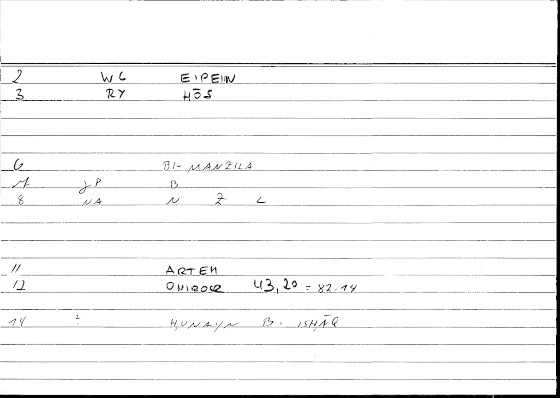 2 WG EIPEIN
3 RY HŌS
6 BI-MANZILA
7 JP B
8 NA N Z L
11 ARTEM
12 ONIROCR 43,20 = 82.14
14 ? HUNAYN B. ISHĀQ